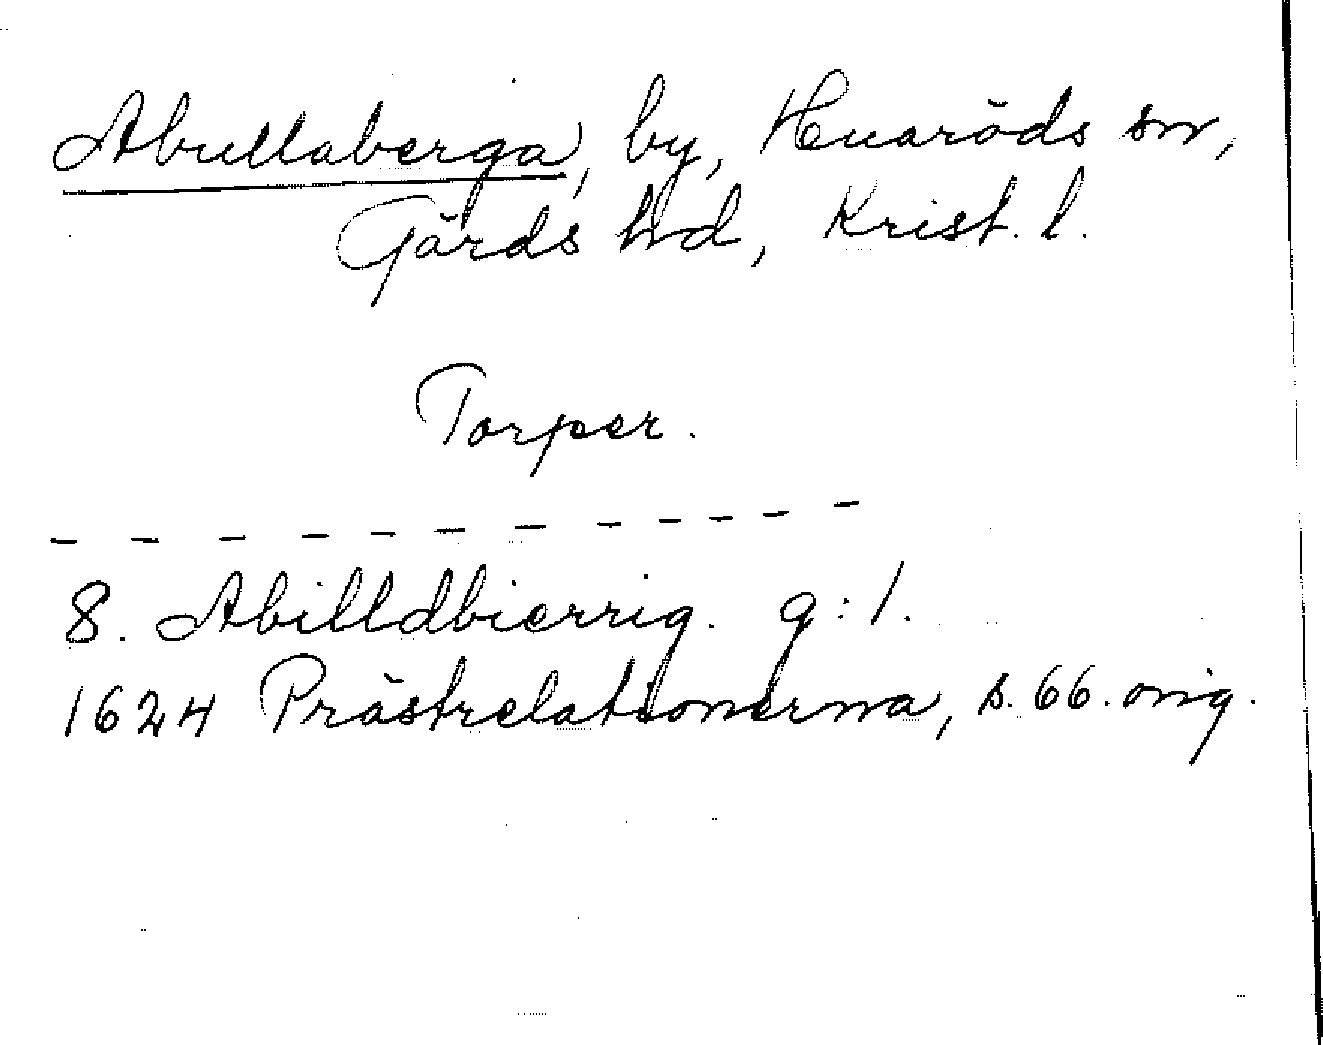 Abullaberga, by, Huaröds sn,
Gärds hd, Krist. l.
Torper.
8. Abilldbierrig. g:l.
1624 Prästrelationerna, s. 66. orig.